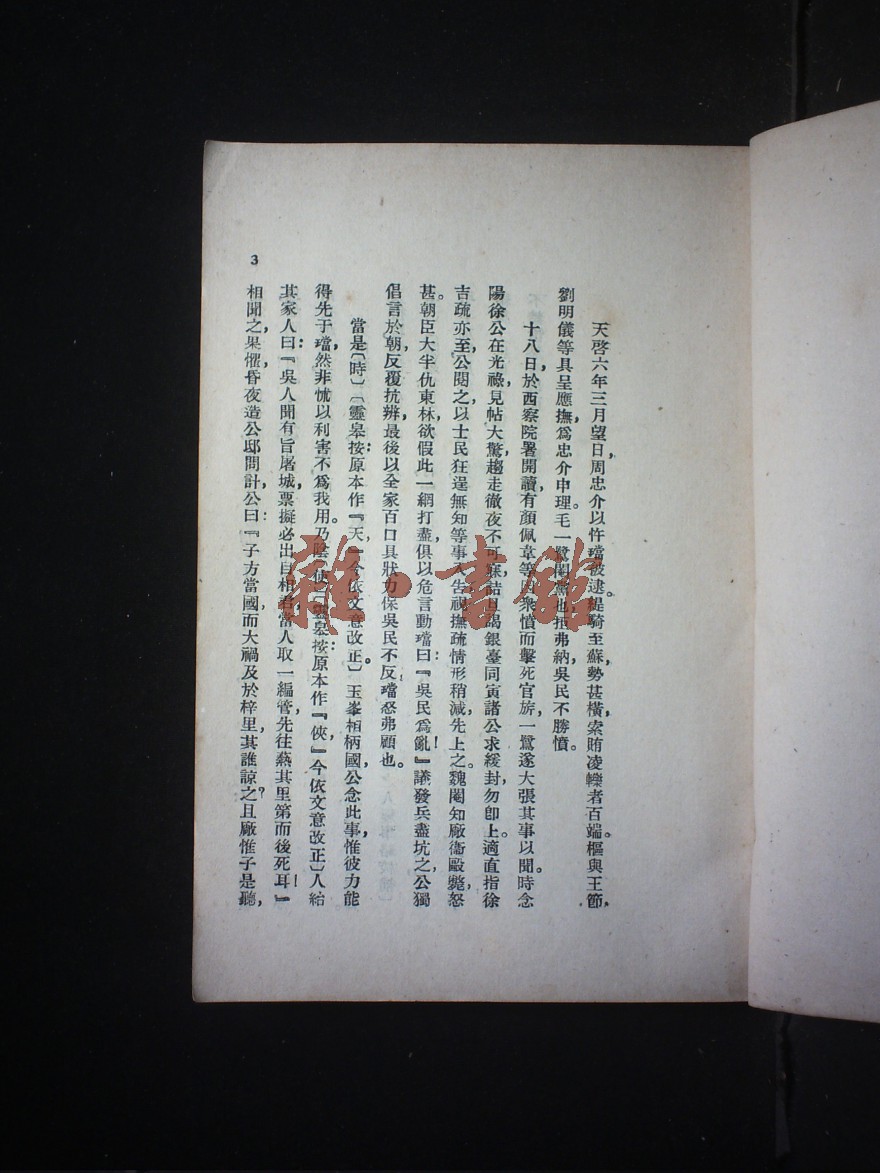 天啓六年三月望日，周忠介以忤璫被逮。緹騎至蘇，勢甚橫，索賄凌轢者百端。樞與王節，
劉明儀等具呈應撫，爲忠介申理。毛一鷺閹黨也，拒弗納，吳民不勝憤。
十八日，於西察院署開讀，有顏佩韋等因衆憤而擊死官旂，一鷺遂大張其事以聞。時念
陽徐公在光祿，見帖大驚，趨走徹夜不可寐，詰旦謁銀臺同寅諸公，求緩封勿卽上。適直指徐
吉疏亦至，公閱之，以士民狂逞無知等事入告，視撫疏情形稍減，先上之。魏閹知廠衞毆斃，怒
甚。朝臣大半仇東林，欲假此一網打盡，俱以危言動璫曰：『吳民爲亂！』議發兵盡坑之。公獨
倡言於朝，反覆抗辨，最後以全家百口具狀力保吳民不反，璫怒弗顧也。
當是〔時〕〔靈皋按：原本作『天』，今依文意改正。〕玉峯相柄國，公念此事惟彼力能
得先于璫，然非怵以利害不爲我用。乃陰〔使〕〔靈皋按：原本作『俠』，今依文意改正〕人紿
其家人曰：『吳人聞有旨屠城，票擬必出自相君，當人取一編管，先往爇其里第而後死耳！』
相聞之果懼，昏夜造公邸問計。公曰：『子方當國，而大禍及於梓里，其誰諒之？且廠惟子是聽，
3
雜·書館